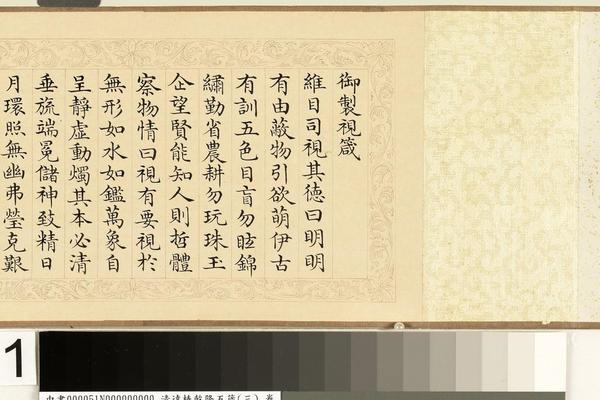 御製視箴
維目司視其德曰明明
有由蔽物引欲萌伊古
有訓五色目盲勿眩錦
繡勤省農耕勿玩珠玉
企望賢能知人則哲體
察物情曰視有要視於
無形如水如鑑萬象自
呈靜虛動燭其本必清
垂旒端冕儲神致精日
月環照無幽弗瑩克艱
1